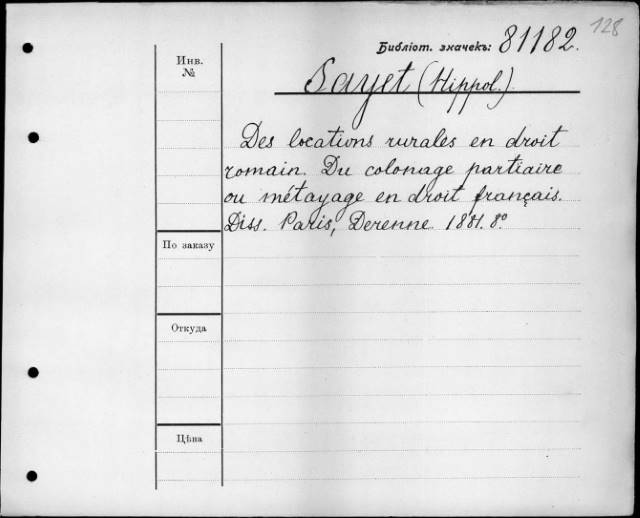 128
Библіот. значекъ: 81182.
Инв.
№
Sayet (Hippol.)
Des locations rurales en droit
romain. Du colonage partiaire
ou métayage en droit français.
Diss. Paris, Derenne 1881. 8°.
По заказу
Откуда
Цѣна